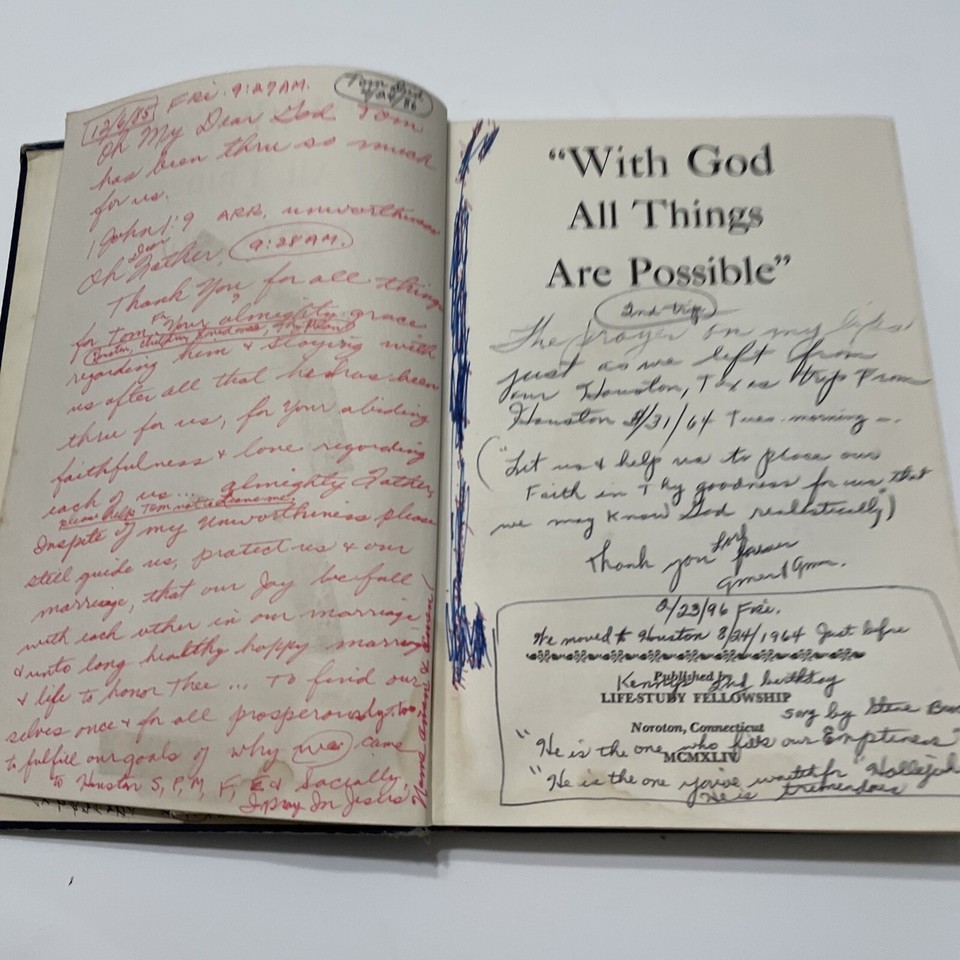 12/6/85 Fri. 9:27 AM.
Tom died
4/24/86
Oh My Dear God Tom
has been thru so much
for us.
1 John 1:9 ARR, unworthiness
Oh Dear Father, 9:28 AM.
Thank You for all things
for Tom, for Your almighty grace
regarding them & staying with
us after all that he has been
thru for us, for Your abiding
faithfulness & love regarding
each of us... almighty Father,
please help Tom not
Inspite of my Unworthiness please
still guide us, protect us & our
marriage, that our Joy be full
with each other in our marriage
& unto long healthy happy marriage
& life to honor Thee... To find our
selves once & for all prosperously, too
to fulfill our goals of why we came
to Houston S, P, M, F, E & Socially
I pray In Jesus'
Name amen & amen
"With God
All Things
Are Possible"
2nd trip
The prayer on my lips
just as we left from
our Houston, Texas trip From
Houston 3/31/64 Tues. morning -.
("Let us & help us to place our
Faith in Thy goodness for us, that
we may know God realistically)
Thank you Lord forever
amen & amen.
2/23/96 Fri.
We moved to Houston 8/24/1964 Just before
Kenny's 2nd birthday
Published by
LIFE-STUDY FELLOWSHIP
song by Steve
Noroton, Connecticut
MCMXLIV
"He is the one who fills our Emptiness"
"He is the one you've waited for "Hallelujah
He is tremendous